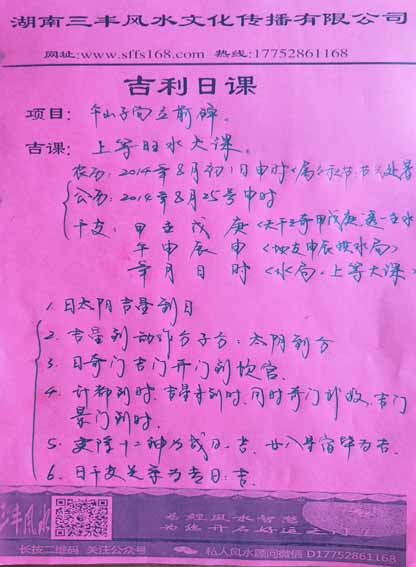 湖南三丰风水文化传播有限公司
网址:www.sffs168.com 热线:17752861168
吉利日课
项目: 午山子向立前碑。
吉课: 上等旺水大课。
农历: 2014年8月初1日申时
公历: 2014年8月25号申时
干支: 甲 壬 戊 庚
午 申 辰 申 (地支申辰拱水局)
年 月 日 时 (水局,上等大课)
1. 日太阴吉星到日
2. 吉星到动作方子方: 太阴到方
3. 日奇门吉门开门到坎宫.
4. 计都到时, 吉星到时, 同时奇门 吉门
景门到时.
5. 建除十二神为成日.吉. 廿八星宿毕为吉.
6. 日干支关系为专日: 吉.
三丰风水
易经风水智慧
为您开启好运之
长按二维码 关注公众号
私人风水顾问微信 D17752861168